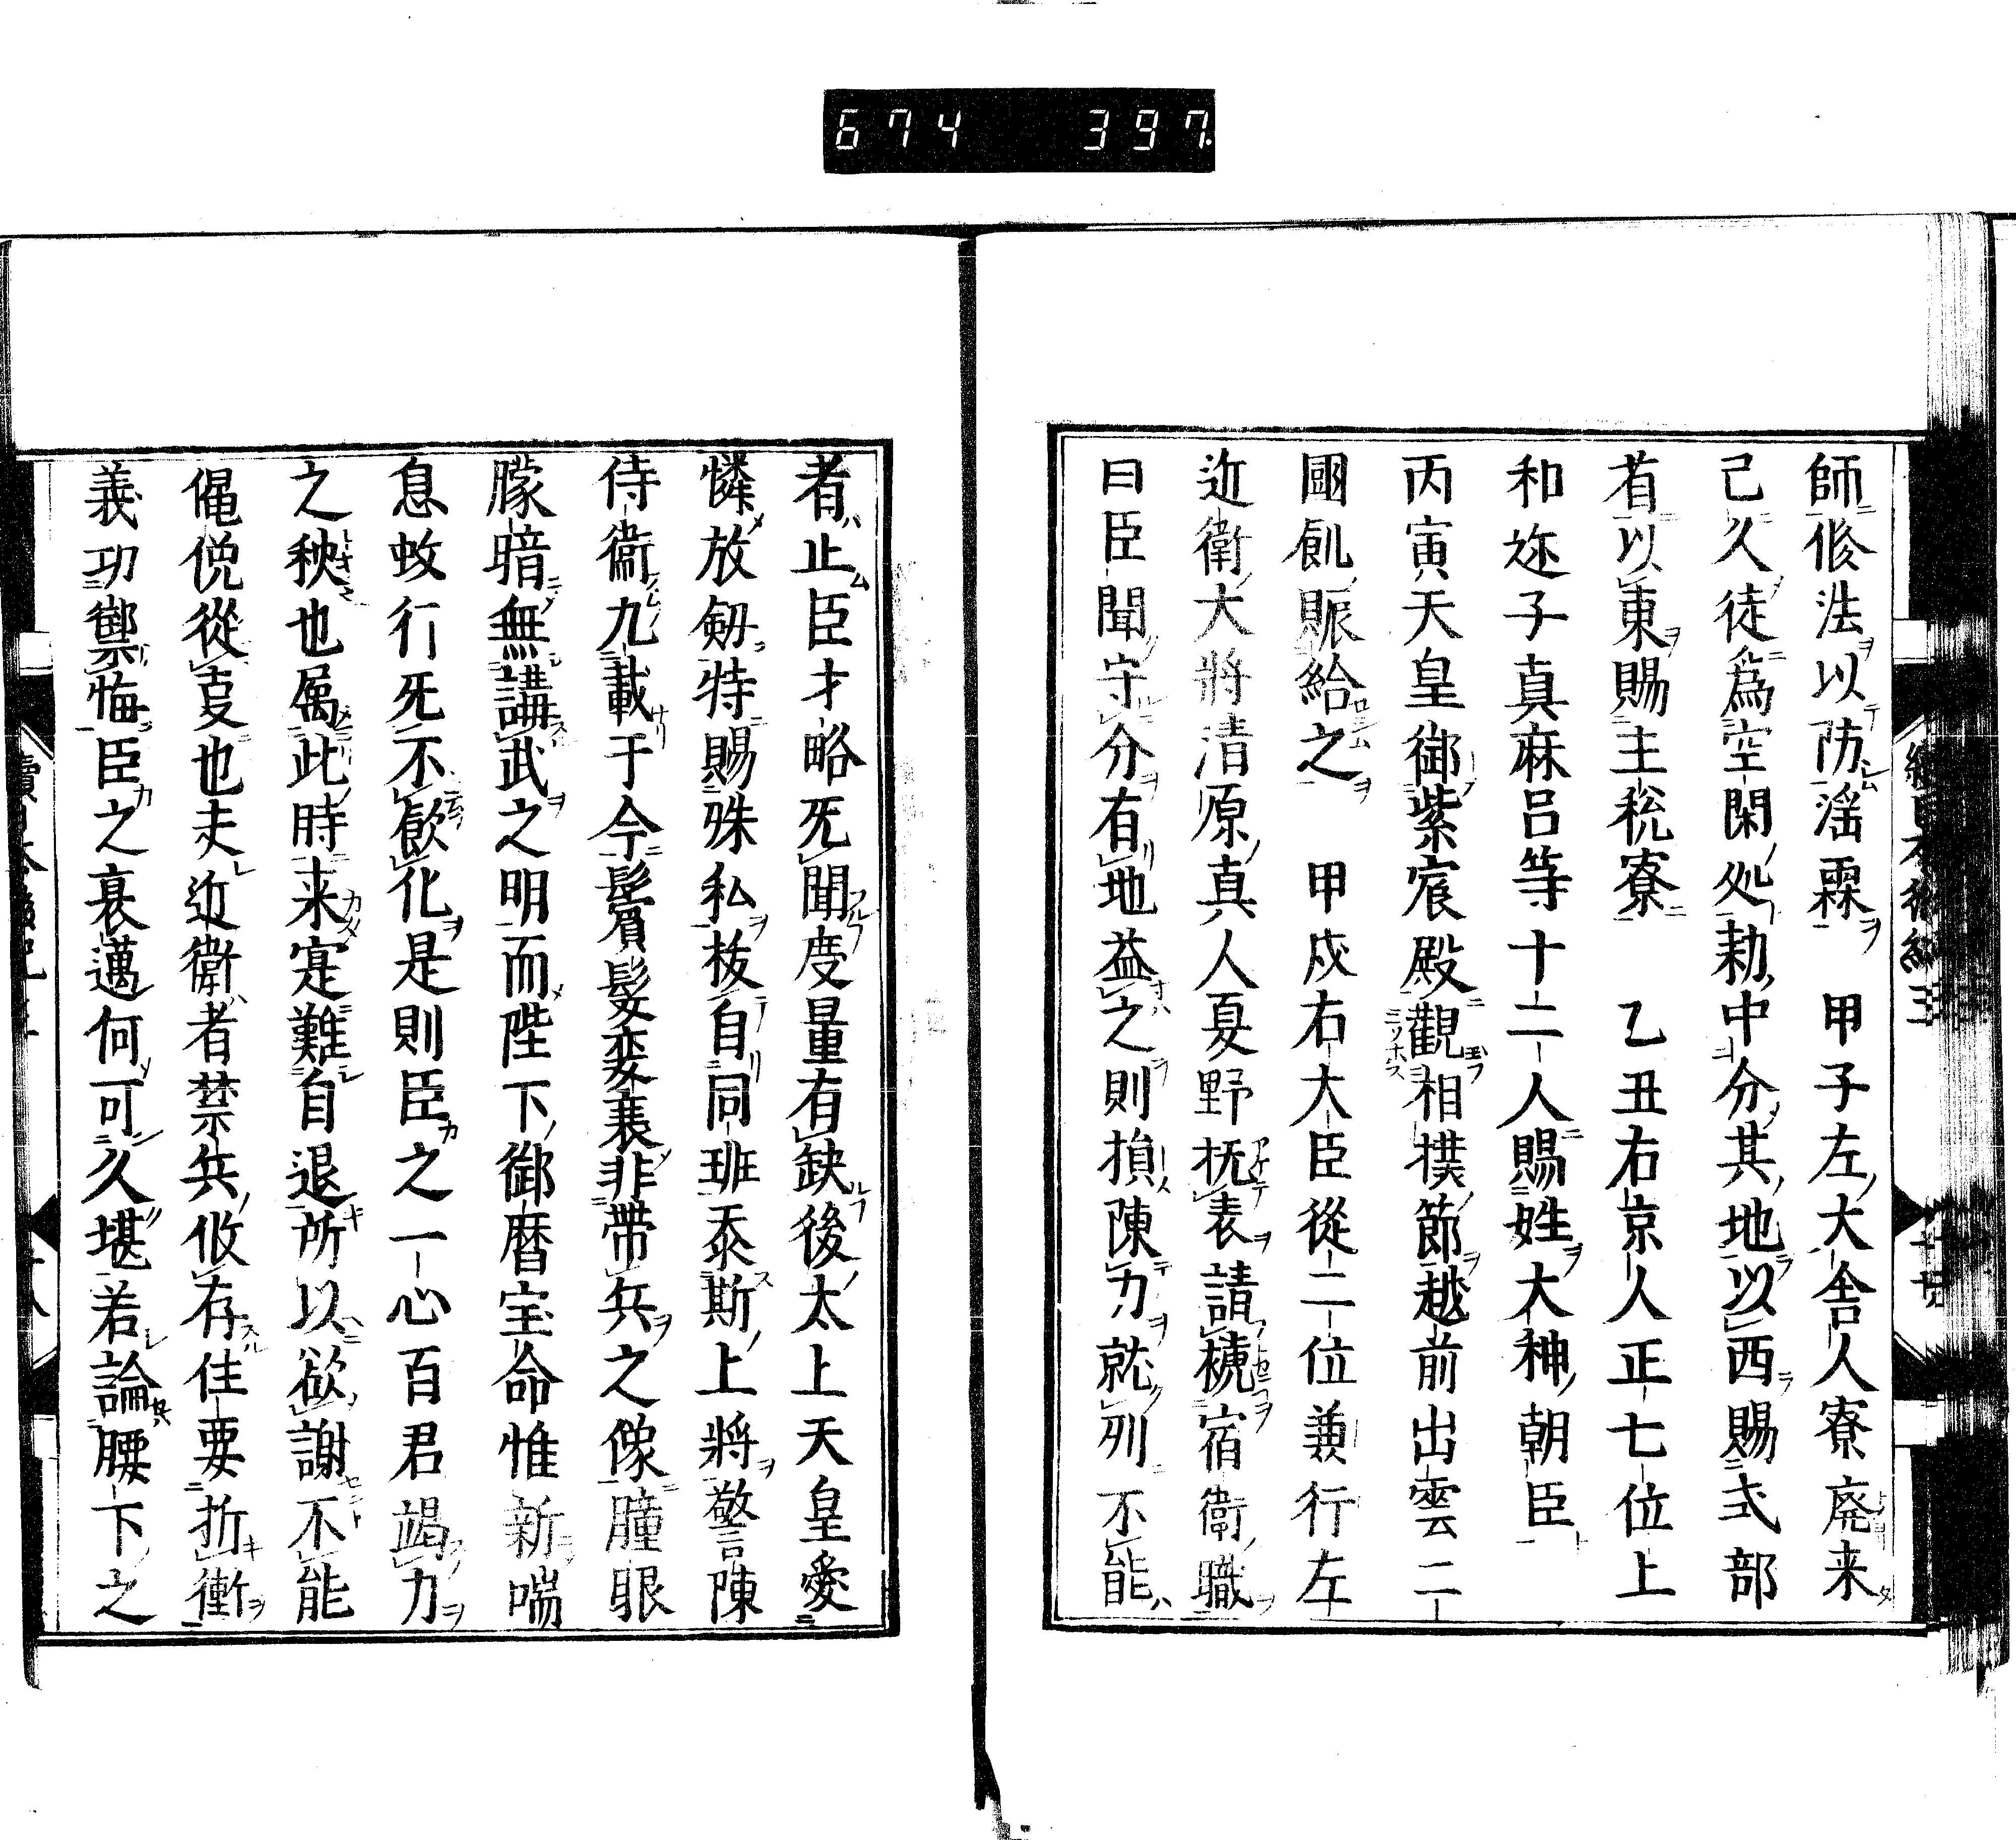 674 397
師修法以防淫霖 甲子左大舎人寮廃来
己久徒爲空閑処勅中分其地以西賜式部
省以東賜主税寮 乙丑右京人正七位上
和迩子真麻呂等十二人賜姓大神朝臣
丙寅天皇御紫宸殿觀相撲節越前出雲二
國飢賑給之 甲戌右大臣從二位兼行左
近衛大將清原真人夏野抗表請概宿衛職
曰臣聞守分有地益之則損陳力就列不能
者止臣才略旡聞度量有缺後太上天皇愛
憐放剱特賜殊私抜自同班忝斯上將警陳
侍衛九載于今鬢髮変衰非帶兵之像朣眼
朦暗無講武之明而陛下御暦宝命惟新喘
息蚑行旡不飮化是則臣之一心百君竭力
之秧也属此時来寔難自退所以欲謝不能
僶俛從㕝也夫近衛者禁兵攸存住要折衝
義功禦悔臣之衰邁何可久堪若論腰下之